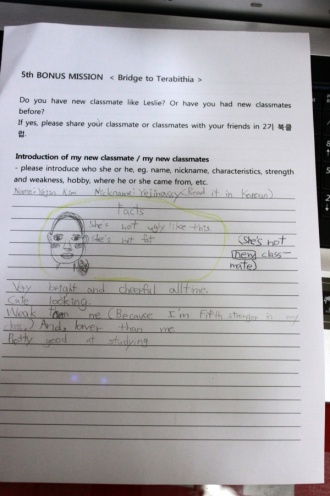 5th BONUS MISSION < Bridge to Terabithia >
Do you have new classmate like Leslie? Or have you had new classmates
before?
If yes, please share your classmate or classmates with your friends in 2기 북클
럽.
Introduction of my new classmate / my new classmates
- please introduce who she or he, eg. name, nickname, characteristics, strength
and weakness, hobby, where he or she came from, etc.
Name: Kim Nickname: (Read it in Korean)
Facts
She's not ugly like this
She's not fat
(She's not
new class-
mate)
Very bright and cheerful all time.
Cute looking.
Weak than me (Because I'm fifth stronger in my
class.) And, lower than me
Pretty good at studying